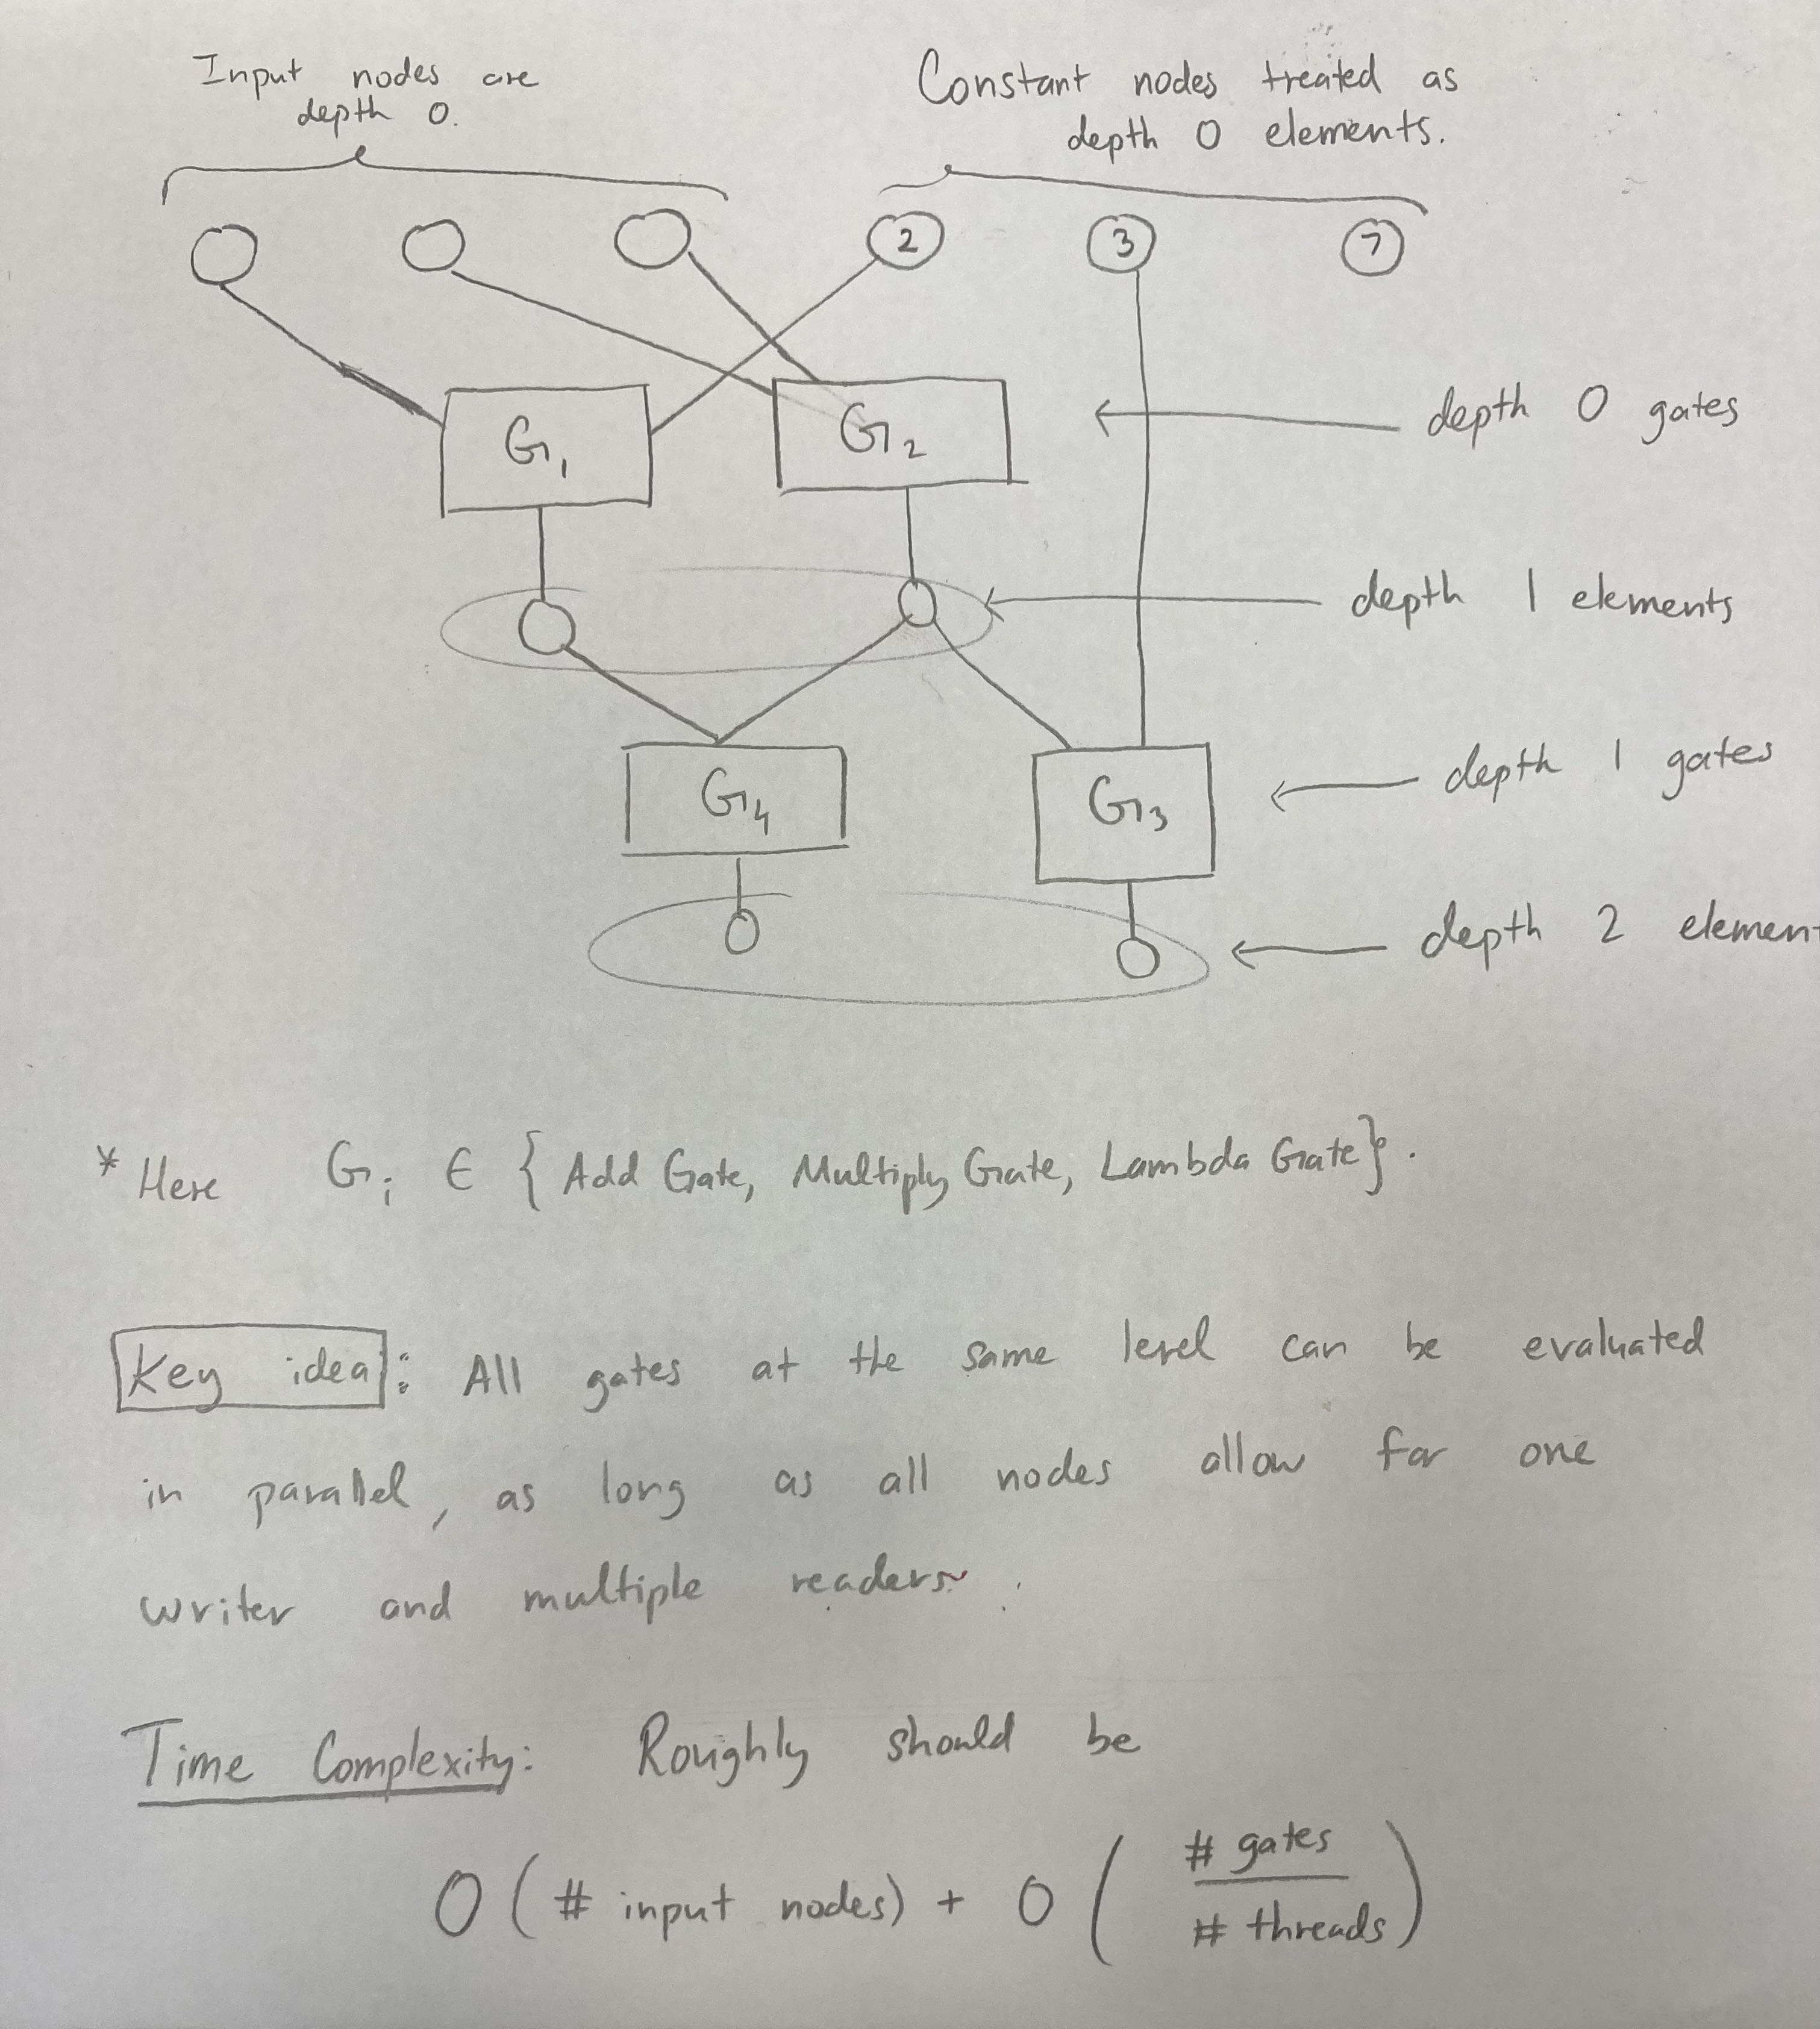 Input nodes are
depth 0.
Constant nodes treated as
depth 0 elements.
2
3
7
G₁
G₂
depth 0 gates
depth 1 elements
G₄
G₃
depth 1 gates
depth 2 elemen
* Here Gᵢ ∈ { Add Gate, Multiply Gate, Lambda Gate}.
Key idea: All gates at the same level can be evaluated
in parallel, as long as all nodes allow for one
writer and multiple readers.
Time Complexity: Roughly should be
O ( # input nodes) + O ( # gates / # threads )